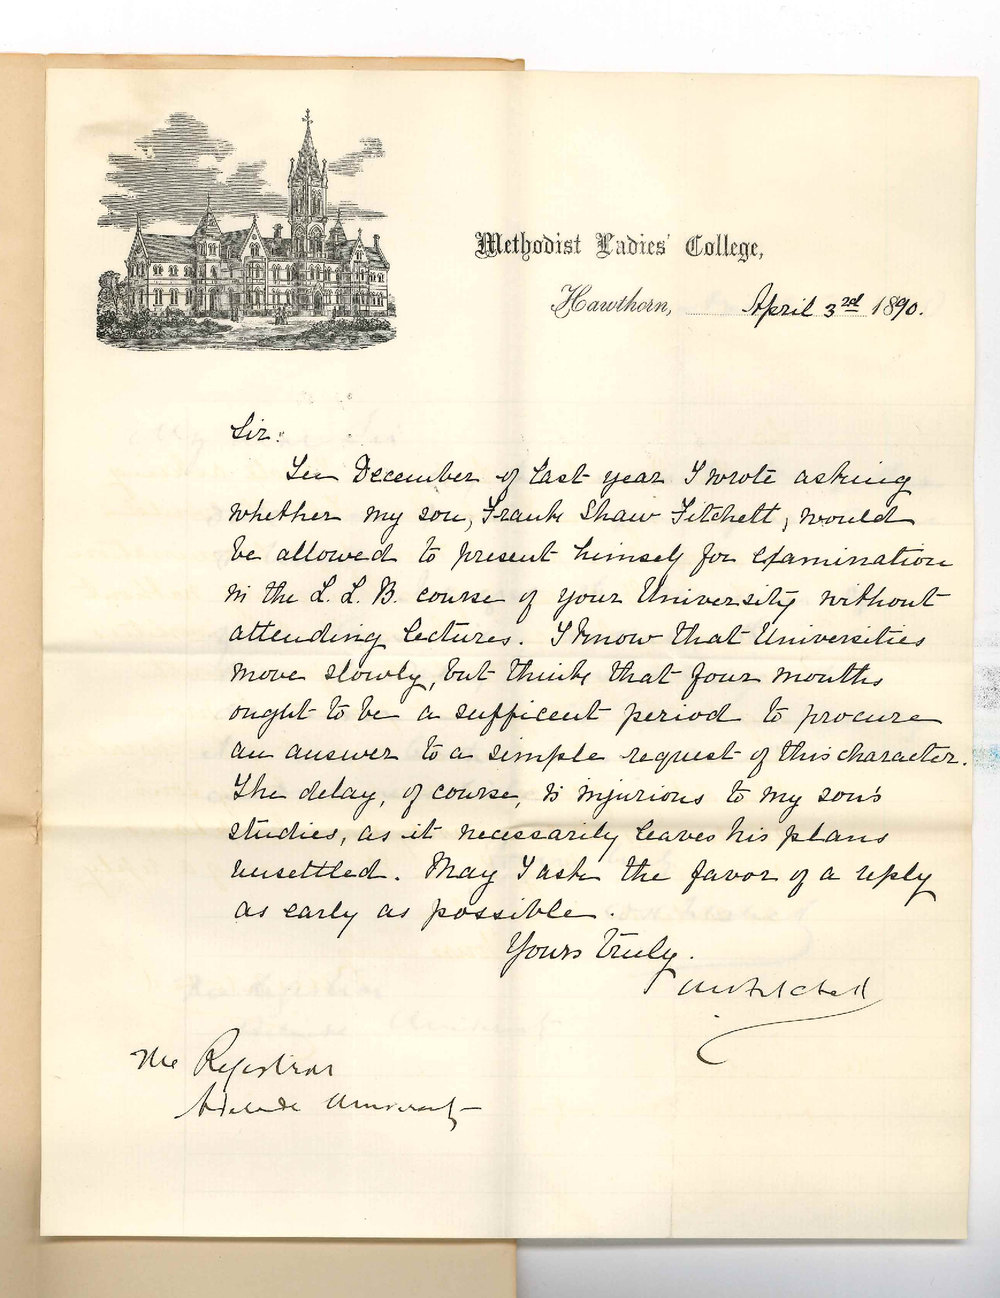 Methodist Ladies' College,
Hawthorn, April 3rd 1890.
Sir.
In December of last year I wrote asking
whether my son, Frank Shaw Fitchett, would
be allowed to present himself for examination
in the L. L. B. course of your University without
attending lectures. I know that Universities
move slowly, but think that four months
ought to be a sufficent period to procure
an answer to a simple request of this character.
The delay, of course, is injurious to my son's
studies, as it necessarily leaves his plans
unsettled. May I ask the favor of a reply
as early as possible.
Yours truly.
W H Fitchett
The Registrar
Adelaide University